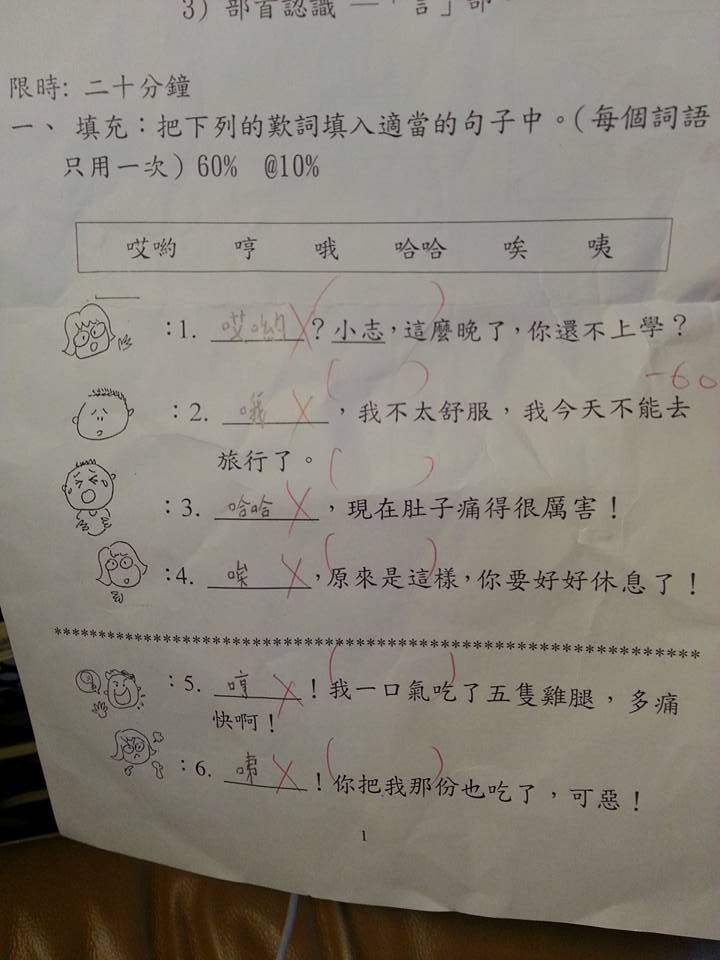 3) 部首認識 —「言」部。
限時: 二十分鐘
一、 填充：把下列的歎詞填入適當的句子中。(每個詞語
只用一次) 60% @10%
哎喲 哼 哦 哈哈 唉 咦
:1. 哎喲 ? 小志, 這麼晚了, 你還不上學？
-60
:2. 哦 , 我不太舒服, 我今天不能去
旅行了。
:3. 哈哈 , 現在肚子痛得很厲害！
:4. 唉 , 原來是這樣, 你要好好休息了！
******************************************************************
:5. 哼 ! 我一口氣吃了五隻雞腿, 多痛
快啊！
:6. 咦 ! 你把我那份也吃了, 可惡！
1